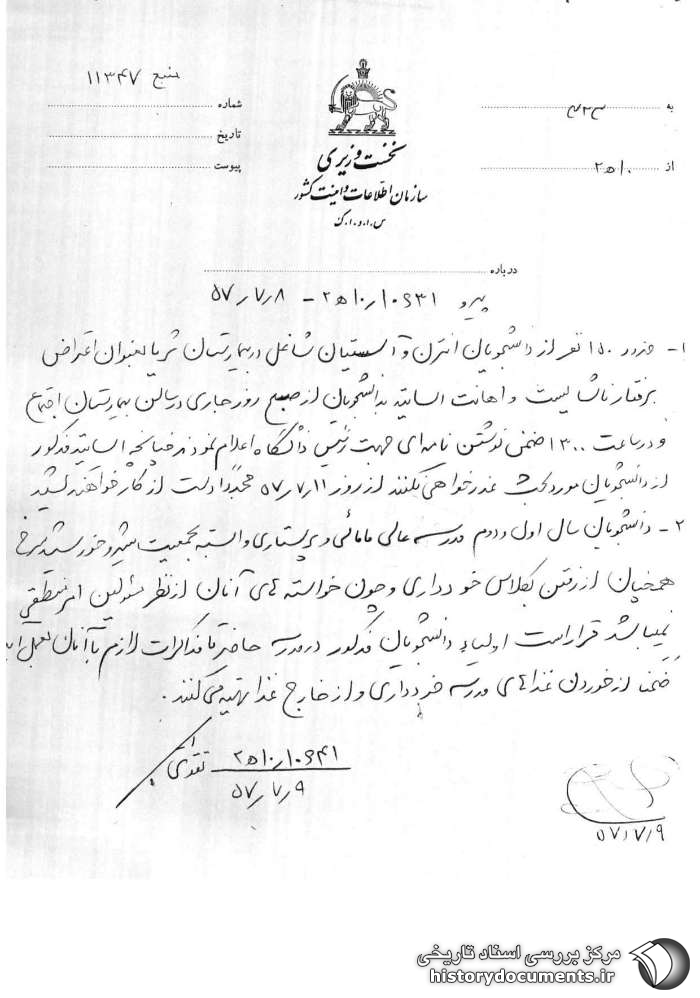 منبع ۱۱۳۴۷
شماره
تاریخ
پیوست
نخست وزیری
سازمان اطلاعات و امنیت کشور
س.ا.و.ا.ک
به ۳۲۳
از ۲۵۱۰
درباره
پیرو ۱۰۶۳۱ / ۲۵۱۰ - ۵۷/۷/۸
۱- حدود ۱۵۰ نفر از دانشجویان انترن و آسیستان شاغل در بیمارستان ثریا بعنوان اعتراض
برفتار ناشایست و اهانت اساتید بدانشجویان از صبح روز جاری در سالن بیمارستان اجتماع
و در ساعت ۱۳۰۰ ضمن نوشتن نامه‌ای جهت رئیس دانشگاه اعلام نمودند چنانچه اساتید مذکور
از دانشجویان مورد بحث عذرخواهی نکنند از روز ۵۷/۷/۱۱ مجدداً دست از کار خواهند کشید
۲- دانشجویان سال اول و دوم مدرسه عالی مامائی و پرستاری وابسته بجمعیت شیر و خورشید سرخ
همچنان از رفتن بکلاس خودداری و چون خواسته های آنان از نظر مسئولین امر منطقی
نمیباشد قرار است اولیاء دانشجویان مذکور در مدرسه حاضر تا مذاکرات لازم با آنان بعمل
ضمنا از خوردن غذاهای مدرسه خودداری و از خارج غذا تهیه می کنند.
۱۰۶۴۱ / ۲۵۱۰
۵۷/۷/۹
تقوائی
۵۷/۷/۹
مرکز بررسی اسناد تاریخی
historydocuments.ir